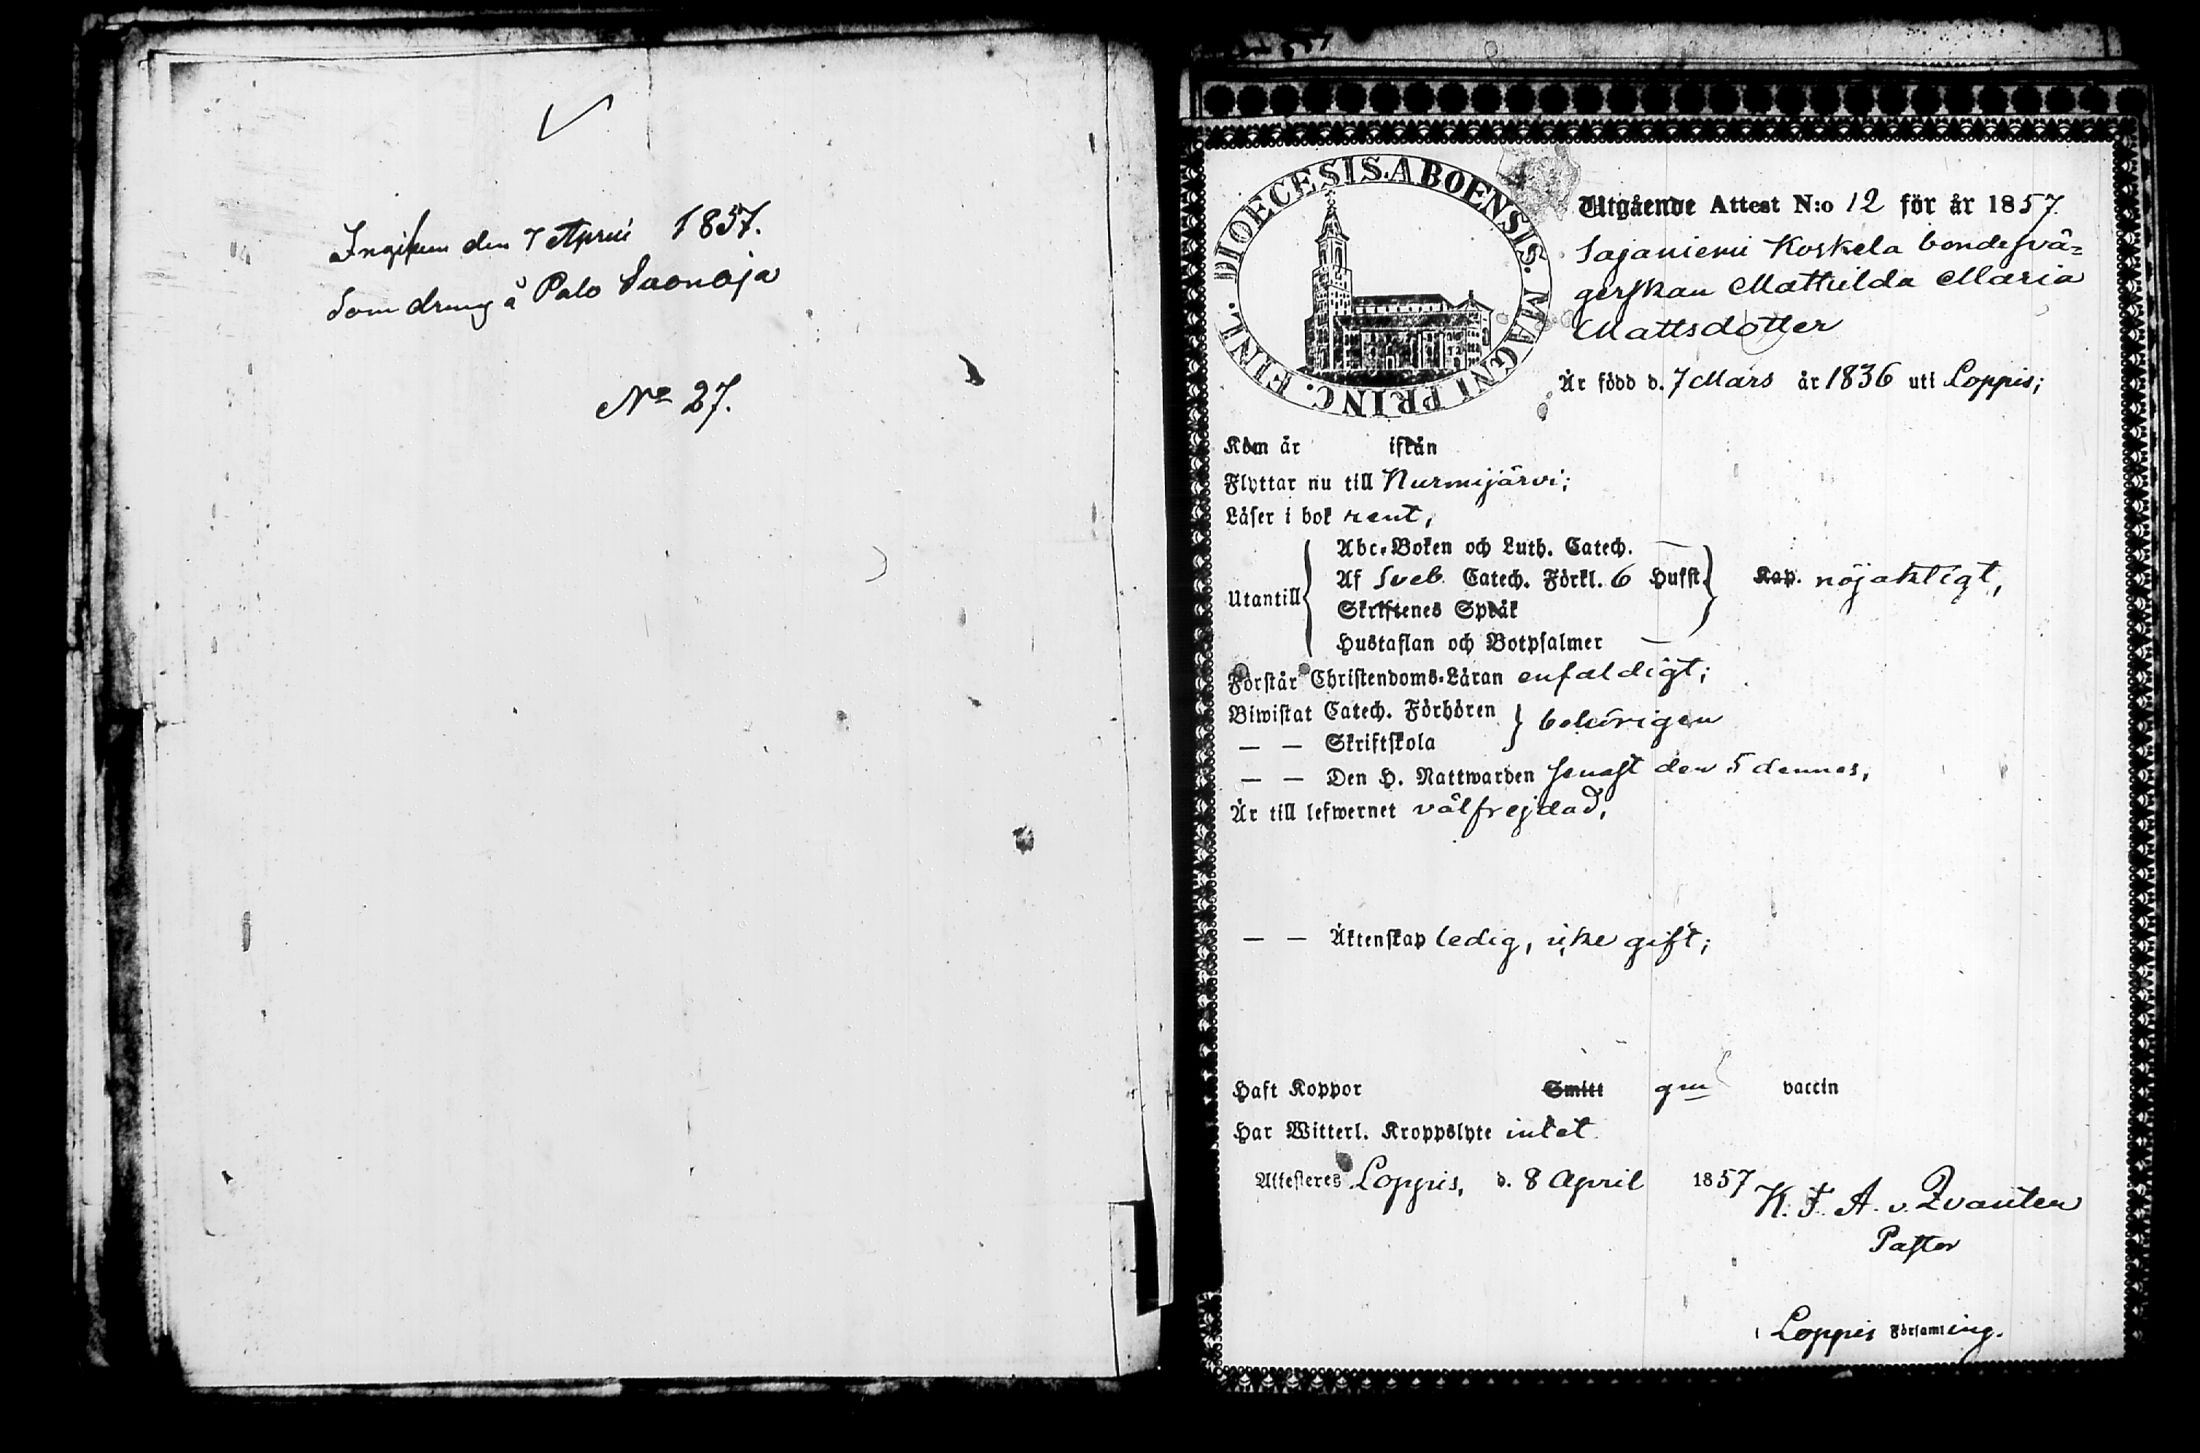 Ingifven den 7 April 1857.
som dräng å Palo Saonoja
No 27.
DIOECESIS.ABOENSIS. MAGNI PRINC. FINL.
Utgående Attest N:o 12 för år 1857.
Sajaniemi Koskela bondesvä=
gerskan Mathilda Maria
Mattsdotter
Är född d. 7 Mars år 1836 uti Loppis;
Kom år ifrån
Flyttar nu till Nurmijärvi;
Läser i bok rent,
Utantill
Abc-Boken och Luth. Catech. —
Af Sveb. Catech. Förkl. 6 Hufst. Kap. nöjaktligt,
Skriftenes Språk
Hustaflan och Botpsalmer —
Förstår Christendoms-Läran enfaldigt;
Biwistat Catech. Förhören
— — Skriftskola } behörigen
— — Den H. Nattwarden senast den 5 dennes,
Är till lefwernet välfrejdad,
— — Äktenskap ledig, icke gift;
Haft Koppor Smitt gm vaccin
Har Witterl. Kroppslyte intet
Attesteres Loppis, d. 8 April 1857
K. F. A. v. Zvanten
Pastor
i Loppis Församling.